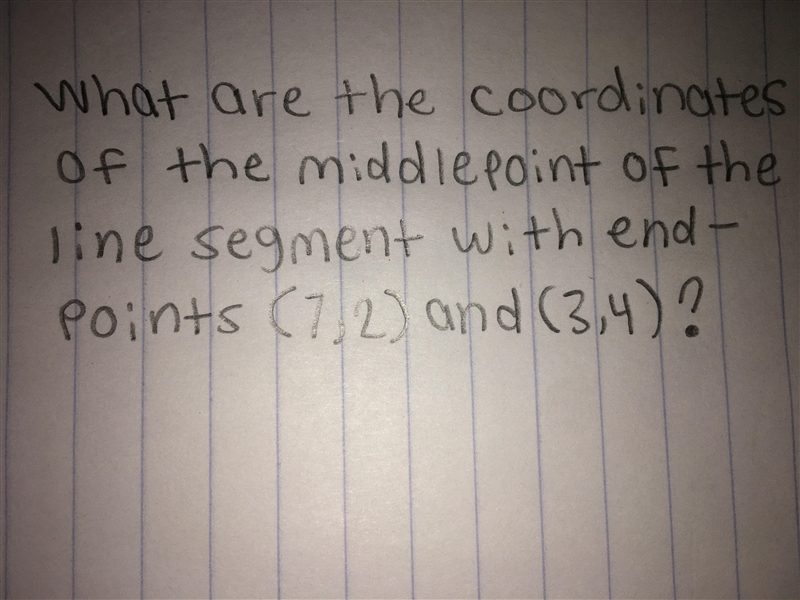 What are the coordinates
of the middlepoint of the
line segment with end-
points (7,2) and (3,4)?